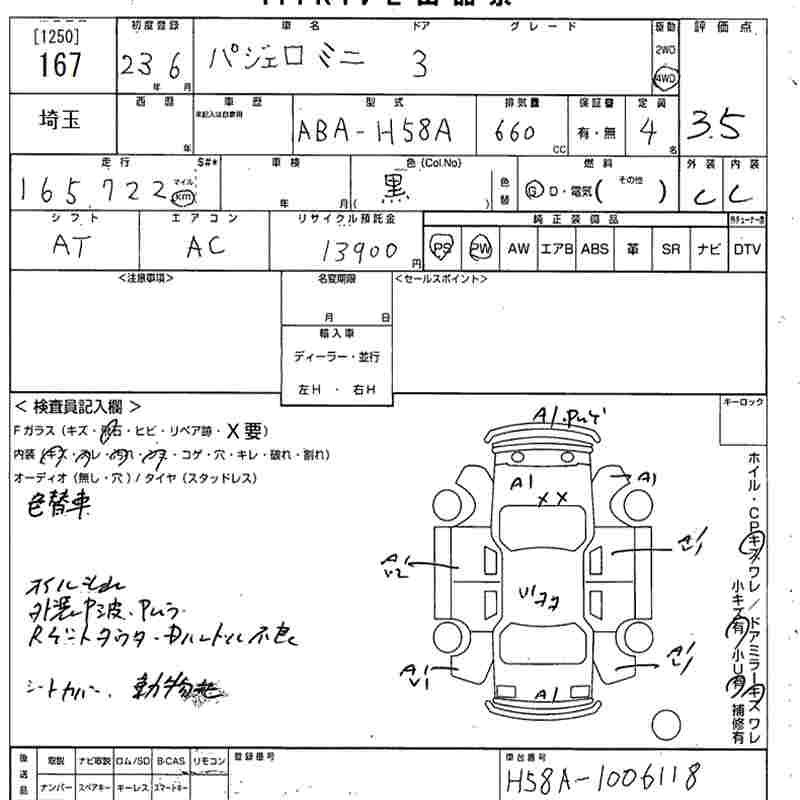 [1250]
167
初度登録
23 6
年 月
車名 ドア グレード
パジェロ ミニ 3
駆動
2WD
4WD
評価点
3.5
埼玉
西暦
年
車歴
未記入は自家用
型式
ABA-H58A
排気量
660
CC
保証書
有・無
定員
4
名
走行
165,722
マイル
km
S#*
車検
年 月
色 (Col.No)
黒
( )
色替
燃料
G D・電気( その他 )
外装
C
内装
C
シフト
AT
エアコン
AC
リサイクル預託金
13900
円
純正装備品
PS PW AW エアB ABS 革 SR ナビ
DTV
<注意事項>
名変期限
月 日
<セールスポイント>
輸入車
ディーラー・並行
左H ・ 右H
< 検査員記入欄 >
Fガラス (キズ・飛石・ヒビ・リペア跡・X要)
内装 (キズ・スレ・汚れ・・コゲ・穴・キレ・破れ・割れ)
オーディオ (無し・穴) / タイヤ (スタッドレス)
色替車
オイルもれ
外装 中波・
不良
シートカバー、動物
キーロック
A1.
A1
XX
A1
A1
U2
U1
A1
U1
A1
A1
ホイル・CPキズ/ワレ/ドアミラーキズワレ
小キズ有/小U有/補修有
後送品
取説 ナビ取説 ロム/SD B-CAS リモコン
ナンバー スペアキー キーレス スマートキー
登録番号
車台番号
H58A-1006118